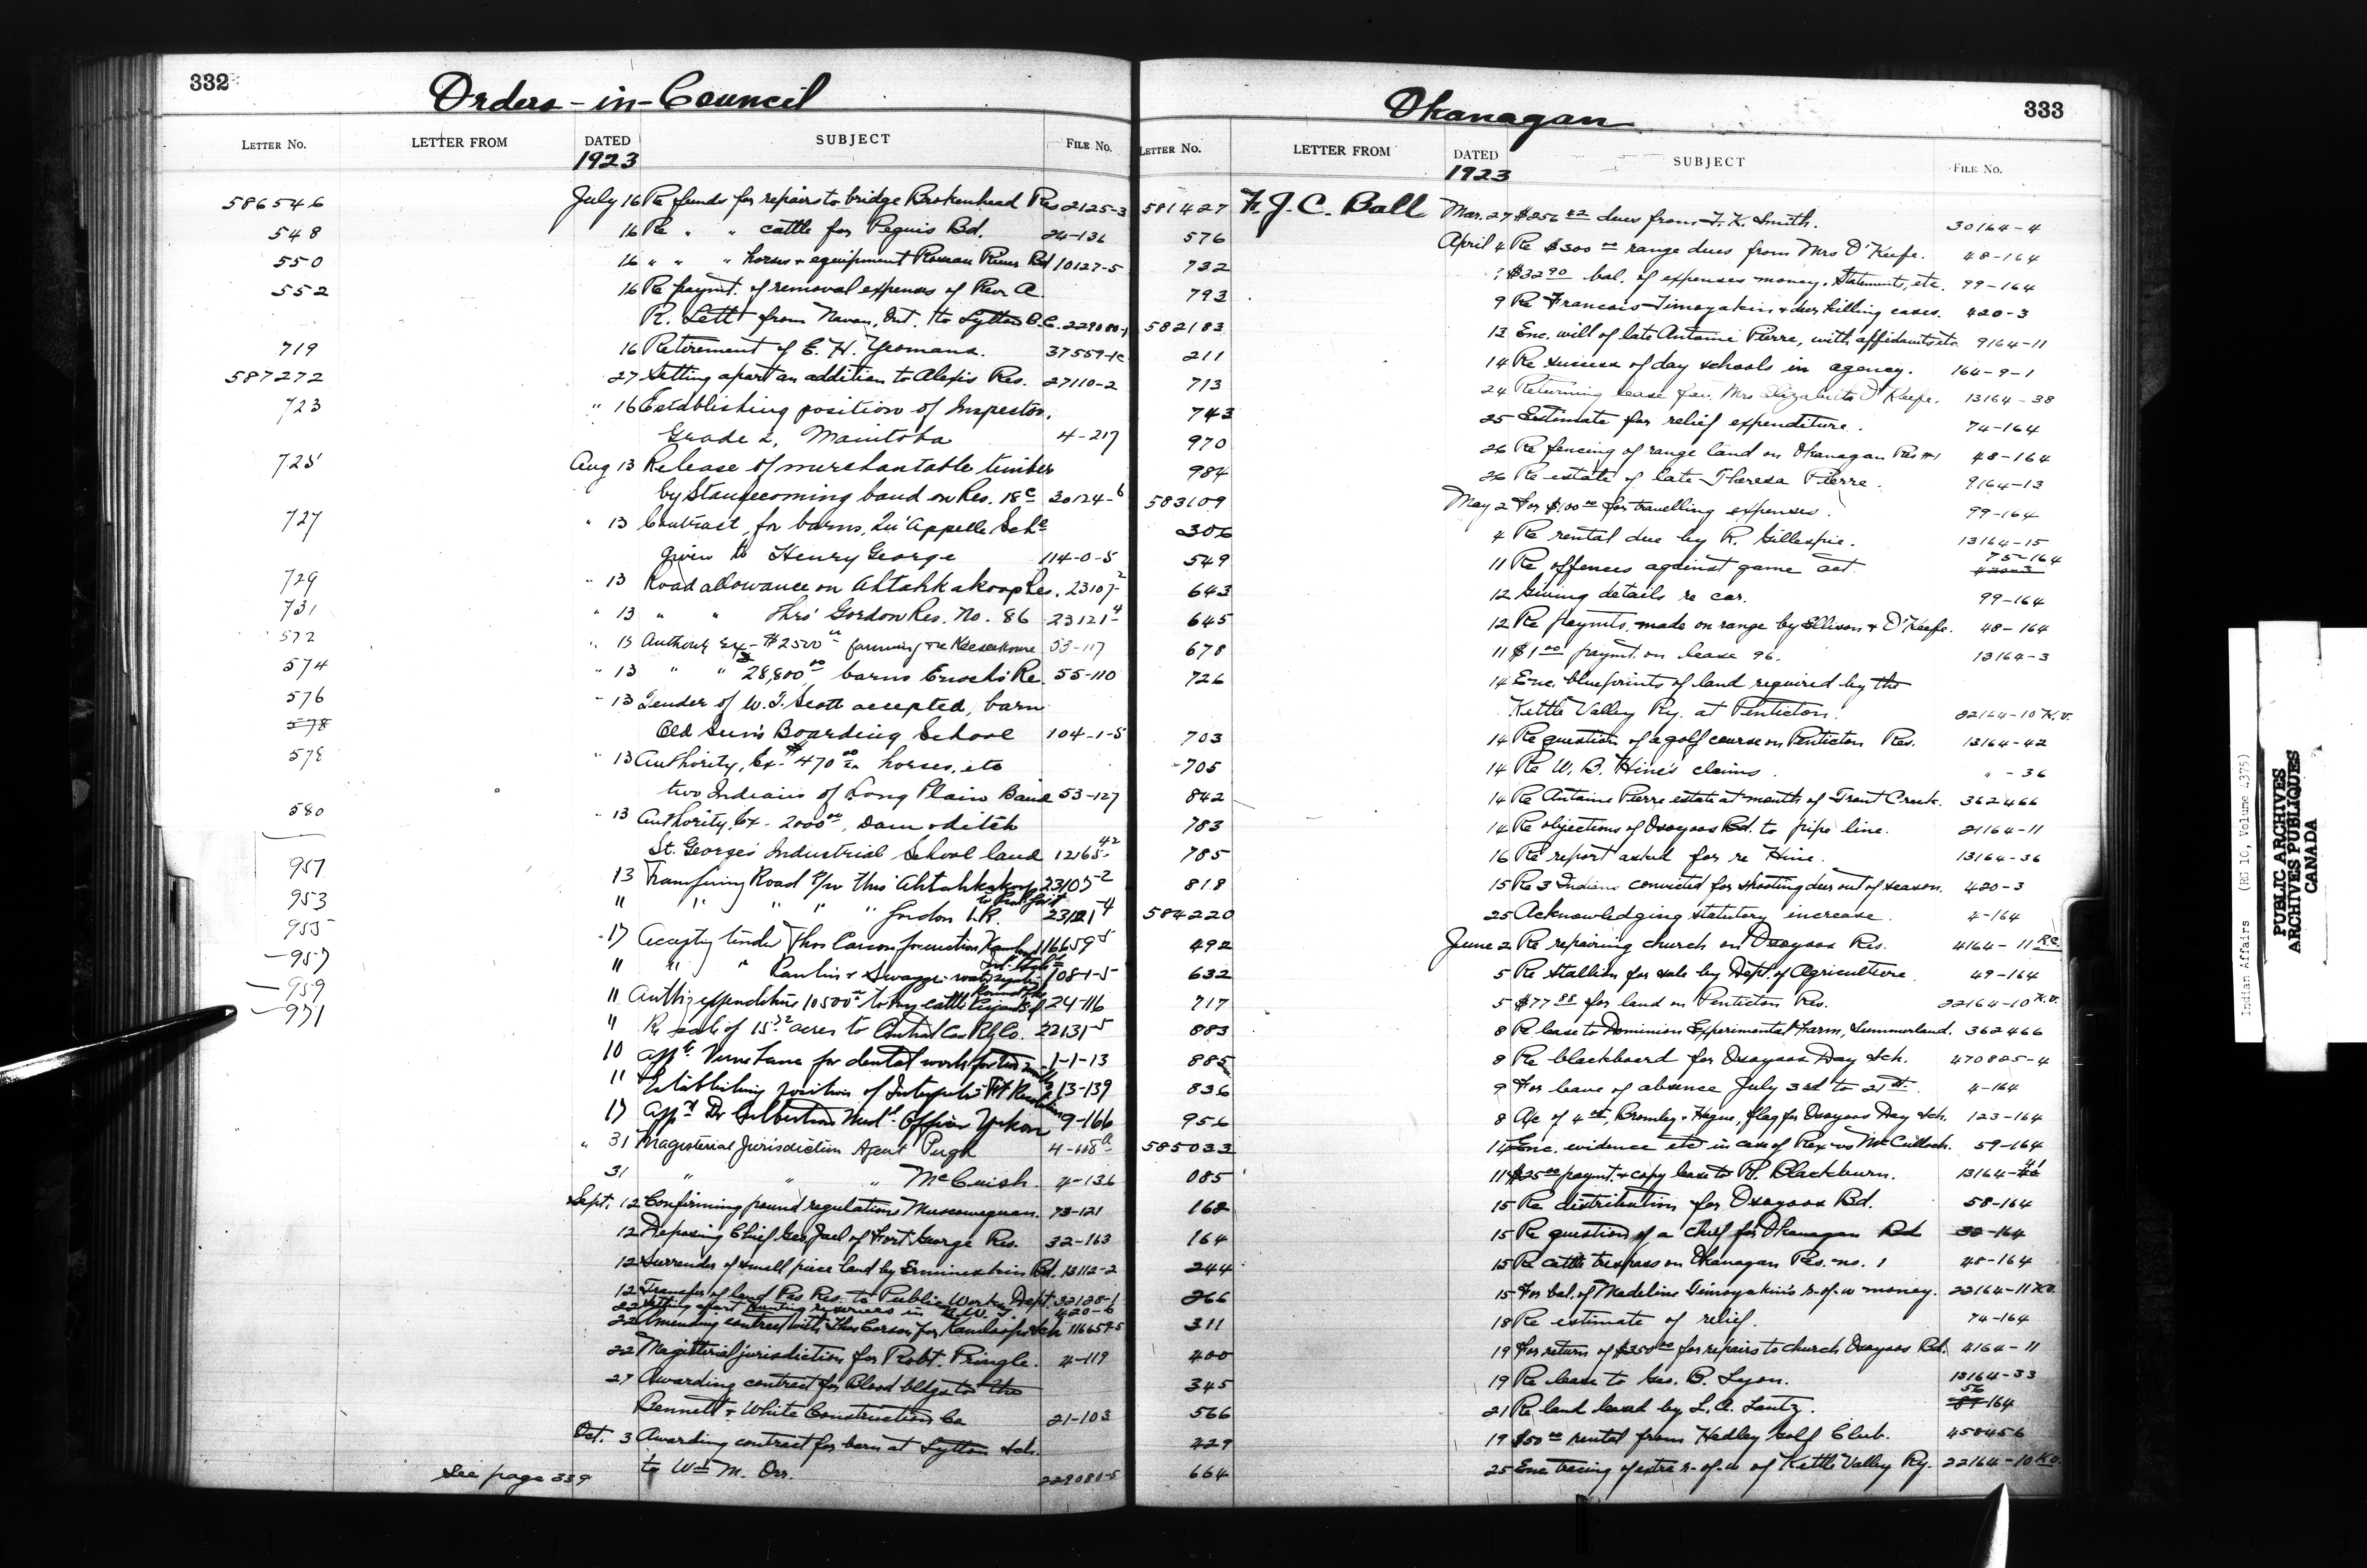 332
Orders-in-Council
LETTER NO. LETTER FROM DATED SUBJECT FILE NO.
1923
586546 July 16 Re funds for repairs to bridge Brokenhead Res 2125-3
548 16 Re " " cattle for Peguis Bd. 24-136
550 16 " " " horses & equipment Roseau River Bd 10127-5
552 16 Re paymt. of removal expenses of Rev. A.
R. Lett from Navan, Ont. to Lytton B.C. 229080-1
719 16 Retirement of E. H. Yeomans. 37559-1c
587272 27 Setting apart an addition to Alexis Res. 27110-2
723 " 16 Establishing position of Inspector,
Grade 2, Manitoba 4-217
725 Aug 13 Release of merchantable timber
by Stangecoming band on Res. 18c 30124-6
727 " 13 Contract, for barns, Qu'Appelle Sch
given to Henry George 114-0-5
729 " 13 Road allowance on Ahtahkakoop Res. 23107-2
731 " 13 " " Thro' Gordon Res. No. 86 23121-4
572 " 13 Authority Ex- $2500 00 farming Keeseekoose 53-117
574 " 13 " " 28,800 00 barns Enoch's Re. 55-110
576 " 13 Tender of W. T. Scott accepted, barn
578 Old Sun's Boarding School 104-1-5
578 " 13 Authority, Ex- $470 00 horses, etc
two Indians of Long Plain Band 53-127
580 " 13 Authority, Ex- 2000 00, Dam & ditch
St. George's Industrial School land 12165-42
951 13 Transfering Road thro' Ahtahkakoop 23107-2
953 " " " " " Gordon I.R. to Prov. Govt 23121-4
955 17 Accepting tender Thos Carson Kamloops 116659-5
957 " " " Rawlin & Swagge- water system 108-1-5
959 " Authy expenditure 10500 00 to buy cattle Peigan Bd 24-116
971 " Re sale of 15.72 acres to Central Can Ry Co. 22131-5
10 Appt. Verne Lane for dental work for two months 1-1-13
" Establishing position of Interpreter 213-139
17 Appt Dr Culbertson Med. Officer Yukon 9-166
" 31 Magisterial Jurisdiction Agent Pugh 4-108a
31 " " " McCuish. 4-136
Sept. 12 Confirming pound regulations Muscowequan. 73-121
12 Deposing Chief Geo Jael of Fort George Res. 32-163
12 Surrender of small piece land by Ermineskin Bd. 13112-2
12 Transfer of land Pas Res. to Public Works Dept. 32128-1
22 Setting apart hunting reserves in N.W. 420-6
22 Amending contract with Thos Carson for Kamloops Sch 116659-5
22 Magisterial jurisdiction for Robt. Pringle. 4-119
27 Awarding contract for Blood bldgs to the
Bennett & White Construction Co 21-103
Oct. 3 Awarding contract for barn at Lytton Sch.
to Wm M. Orr. 229080-5
See page 339
333
Okanagan
LETTER NO. LETTER FROM DATED SUBJECT FILE NO.
1923
581427 F. J. C. Ball Mar. 27 $256 42 dues from F. K. Smith. 30164-4
576 April 4 Re $300 00 range dues from Mrs O'Keefe. 48-164
732 7 $32 90 bal. of expenses money. Statements, etc. 99-164
793 9 Re Francois Timoyakin & deer killing cases. 420-3
582183 13 Enc. will of late Antoine Pierre, with affidavits etc 9164-11
211 14 Re success of day schools in agency. 164-9-1
713 24 Returning lease fav. Mrs Elizabeth O'Keefe. 13164-38
743 25 Estimate for relief expenditure. 74-164
970 26 Re fencing of range land on Okanagan Res #1 48-164
984 26 Re estate of late Theresa Pierre. 9164-13
583109 May 2 For $100 00 for travelling expenses. 99-164
306 4 Re rental due by R. Gillespie. 13164-15
549 11 Re offences against game act. 75-164
643 12 Giving details re car. 99-164
645 12 Re paymts. made on range by Ellison & O'Keefe. 48-164
678 11 $1 00 paymt. on lease 96. 13164-3
726 14 Enc. blueprints of land required by the
Kettle Valley Ry. at Penticton. 22164-10 K.V.
703 14 Re question of a golf course on Penticton Res. 13164-42
705 14 Re W. B. Hine's claims. " -36
842 14 Re Antoine Pierre estate at mouth of Trout Creek. 362466
783 14 Re objections of Osoyoos Bd. to pipe line. 21164-11
785 16 Re report asked for re Hine. 13164-36
818 15 Re 3 Indians convicted for shooting deer out of season. 420-3
584220 25 Acknowledging statutory increase. 4-164
492 June 2 Re repairing church on Osoyoos Res. 4164-11 R.C.
632 5 Re stallion for sale by Dept. of Agriculture. 49-164
717 5 $77 88 for land on Penticton Res. 22164-10 K.V.
883 8 Re lease to Dominion Experimental Farm, Summerland. 362466
885 8 Re blackboard for Osoyoos Day Sch. 470805-4
836 9 For leave of absence July 3rd to 21st. 4-164
956 8 A/c of 4 00, Bromley & Hague, flag for Osoyoos Day Sch. 123-164
585033 14 Enc. evidence etc in case of Rex vs McCulloch. 59-164
085 11 $25 00 paymt. & copy lease to H. Blackburn. 13164-41
168 15 Re distribution for Osoyoos Bd. 58-164
164 15 Re question of a Chief for Okanagan Bd 32-164
244 15 Re cattle trespass on Okanagan Res. no. 1 48-164
266 15 For bal. of Madeline Timoyakin's r-of-w money. 22164-11 K.V.
311 18 Re estimate of relief. 74-164
400 19 For return of $350 00 for repairs to church Osoyoos Bd. 4164-11
345 19 Re lease to Geo. B. Lyon. 13164-33
566 21 Re land leased by L. A. Lantz. 56-164
429 19 $50 00 rental from Hedley Golf Club. 450456
664 25 Enc tracing of extra r-of-w of Kettle Valley Ry. 22164-10 K.V.
Indian Affairs (RG 10, Volume 1375)
PUBLIC ARCHIVES
ARCHIVES PUBLIQUES
CANADA